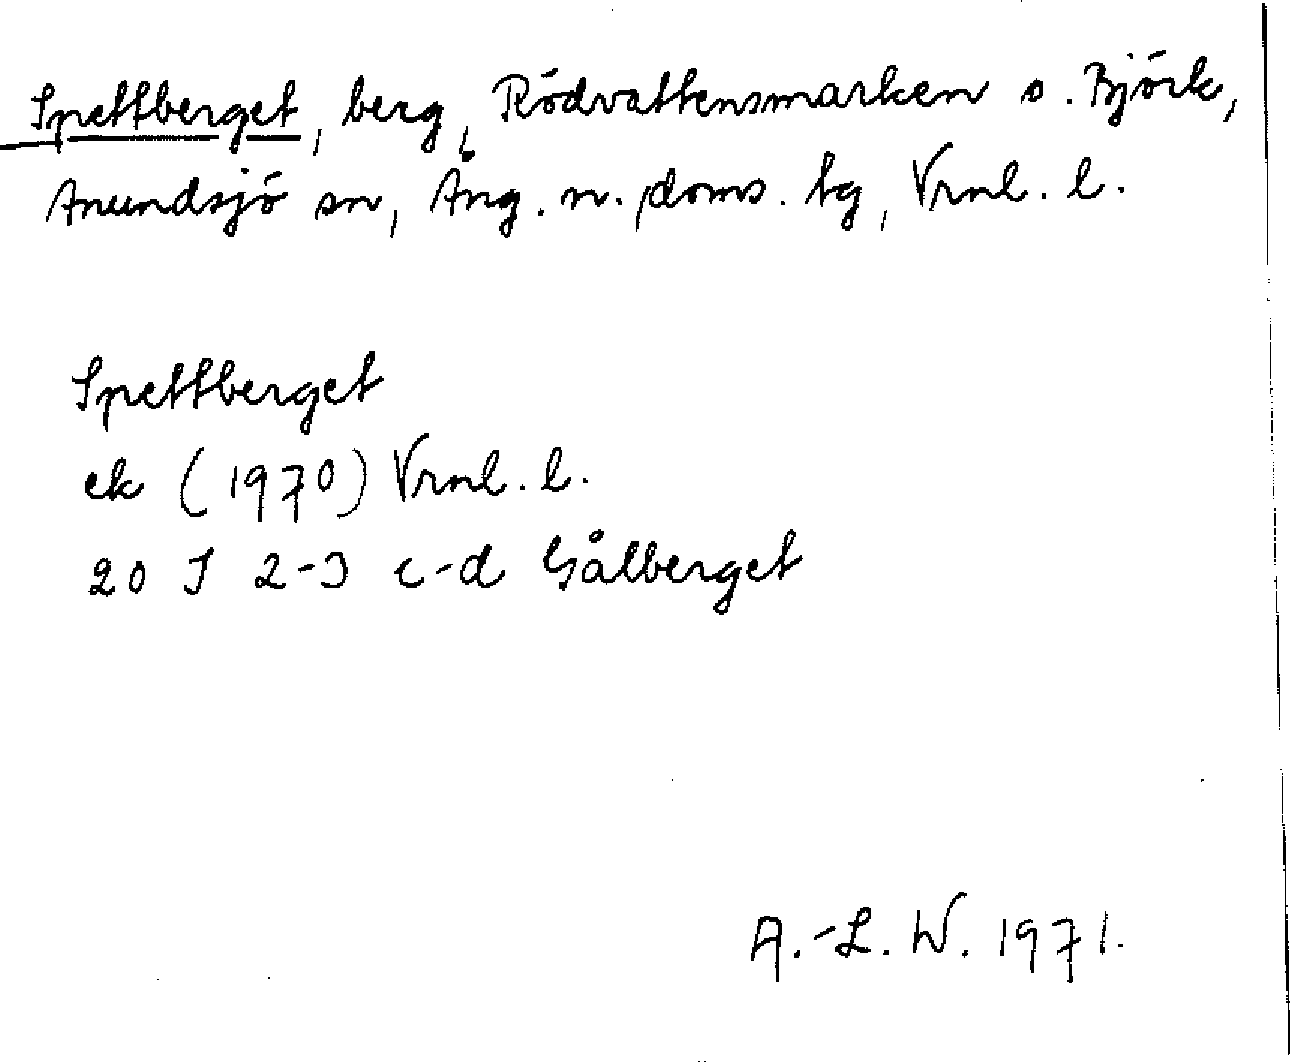 Spettberget, berg, Rödvattensmarken o. Björk,
Anundsjö sn, Ång. n. doms. tg, Vrnl. l.
Spettberget
ek (1970) Vrnl. l.
20 J 2-3 c-d Gålberget
A.-L. W. 1971.